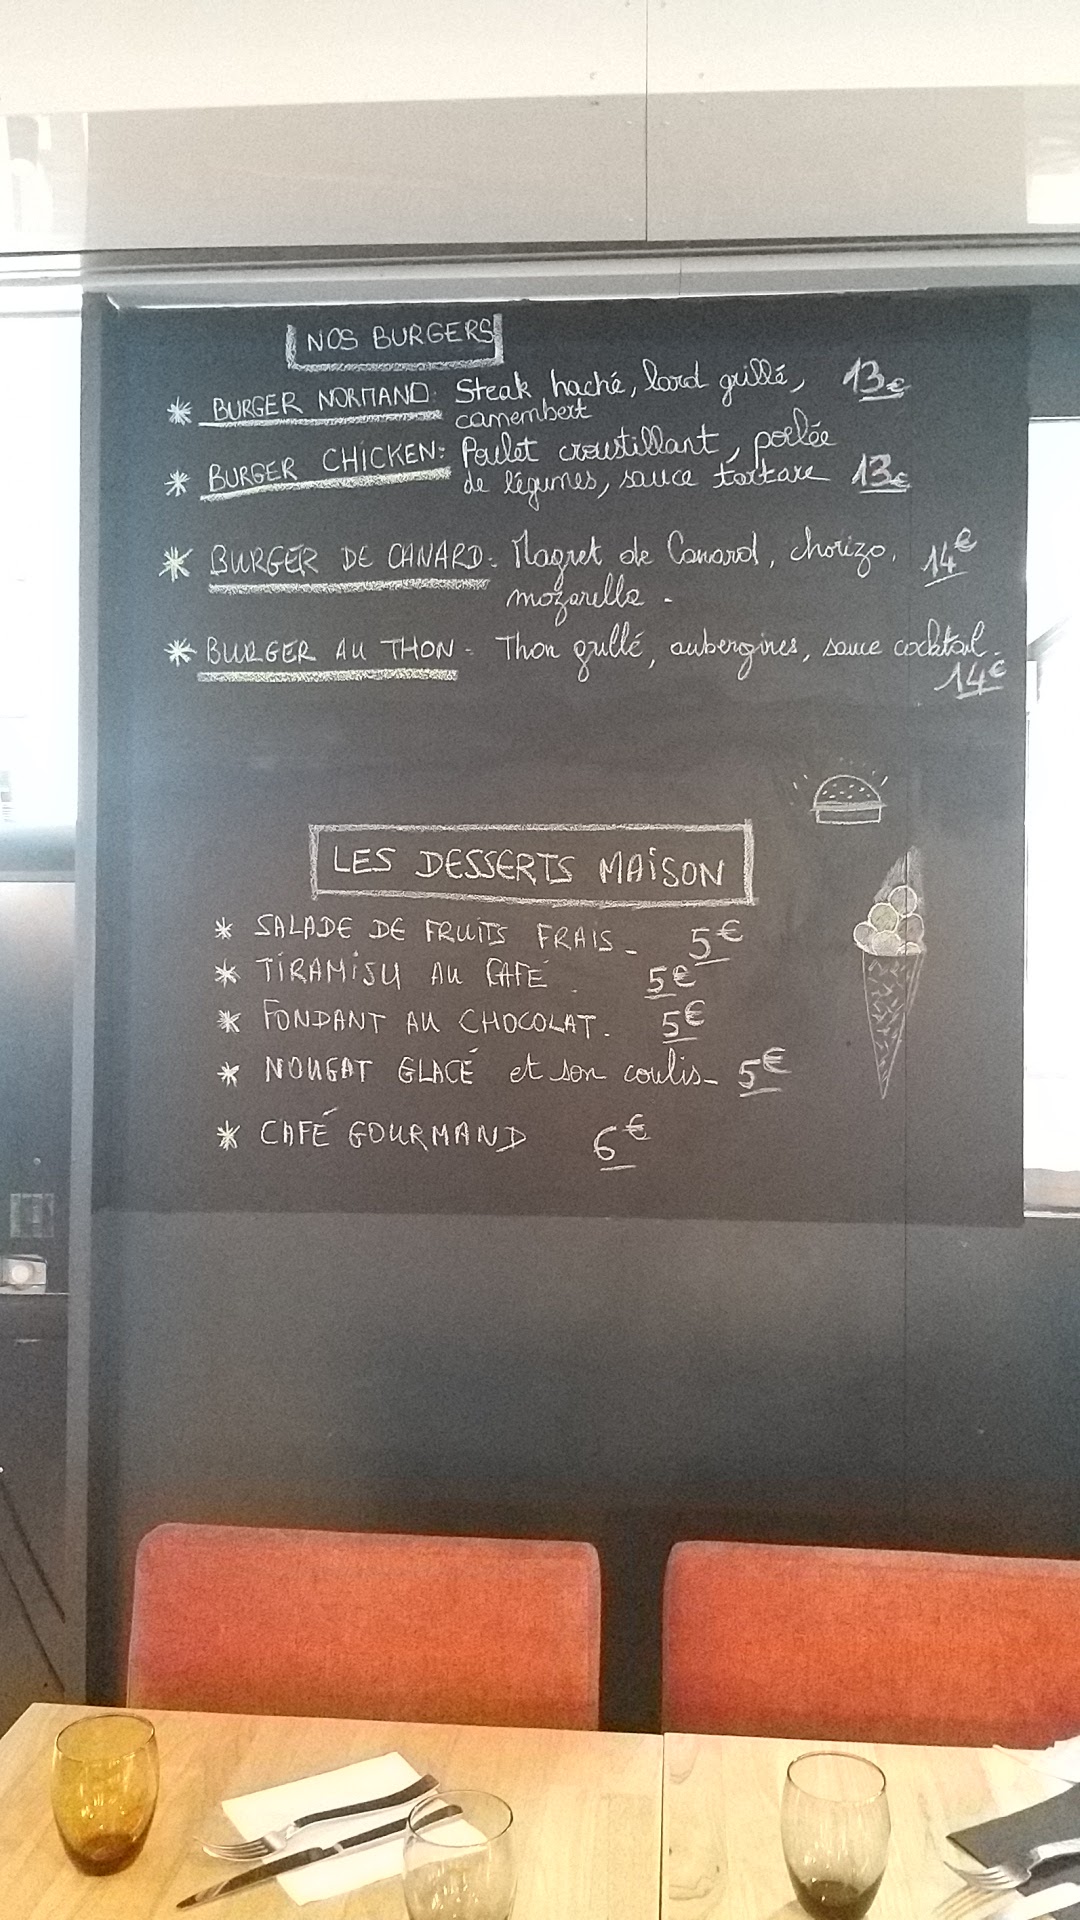 NOS BURGERS
* BURGER NORMAND: Steak haché, lard grillé, 13€
camembert
* BURGER CHICKEN: Poulet croustillant, poêlée
de légumes, sauce tartare 13€
* BURGER DE CANARD - Magret de Canard, chorizo, 14€
mozarella -
* BURGER AU THON - Thon grillé, aubergines, sauce cocktail -
14€
LES DESSERTS MAISON
* SALADE DE FRUITS FRAIS - 5€
* TIRAMISU AU CAFÉ . 5€
* FONDANT AU CHOCOLAT. 5€
* NOUGAT GLACÉ et son coulis - 5€
* CAFÉ GOURMAND 6€